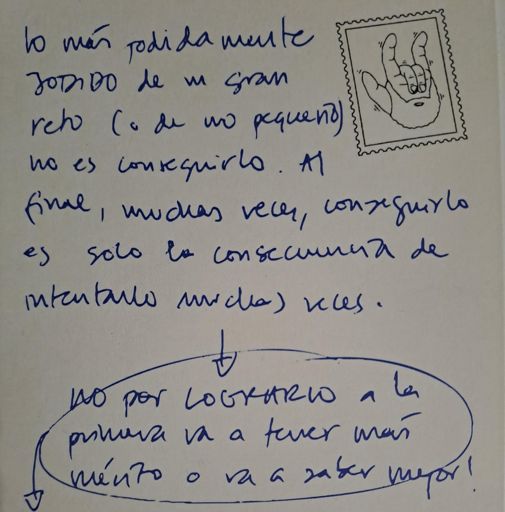 lo más jodidamente
JODIDO de un gran
reto (o de uno pequeño)
no es conseguirlo. Al
final, muchas veces, conseguirlo
es solo la consecuencia de
intentarlo muchas veces.
NO por LOGRARLO a la
primera va a tener más
mérito o va a saber mejor!